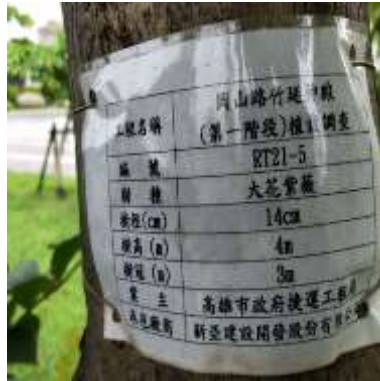 工程名稱 岡山路竹延伸線
(第一階段)植栽調查
編號 RT21-5
樹種 大花紫薇
樹徑(cm) 14cm
樹高(m) 4m
樹冠(m) 3m
業主 高雄市政府捷運工程局
承商廠商 新亞建設開發股份有限公司